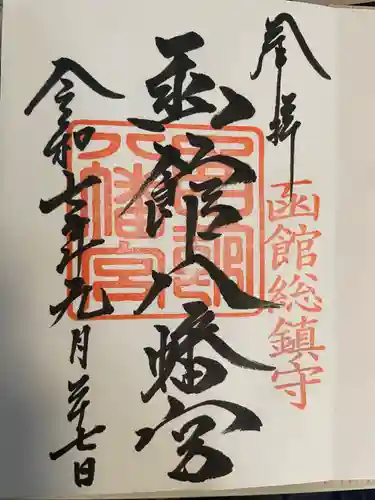 奉拝
函館総鎮守
函館八幡宮
八幡宮
令和七年元月廿七日